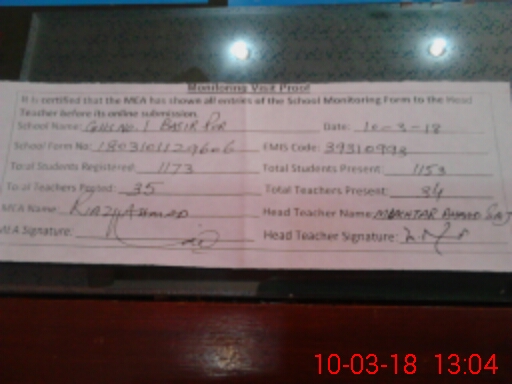 Monitoring Visit Proof
It is certified that the MEA has shown all entries of the School Monitoring Form to the Head
Teacher before its online submission.
School Name: GHS No. 1 BASIR PUR Date: 10-3-18
School Form No: EMIS Code: 39310993
Total Students Registered: 1173 Total Students Present: 1153
Total Teachers Posted: 35 Total Teachers Present: 34
MEA Name: Riaz Ahmad Head Teacher Name: MUKHTAR AHMAD
MEA Signature: Head Teacher Signature:
10-03-18 13:04